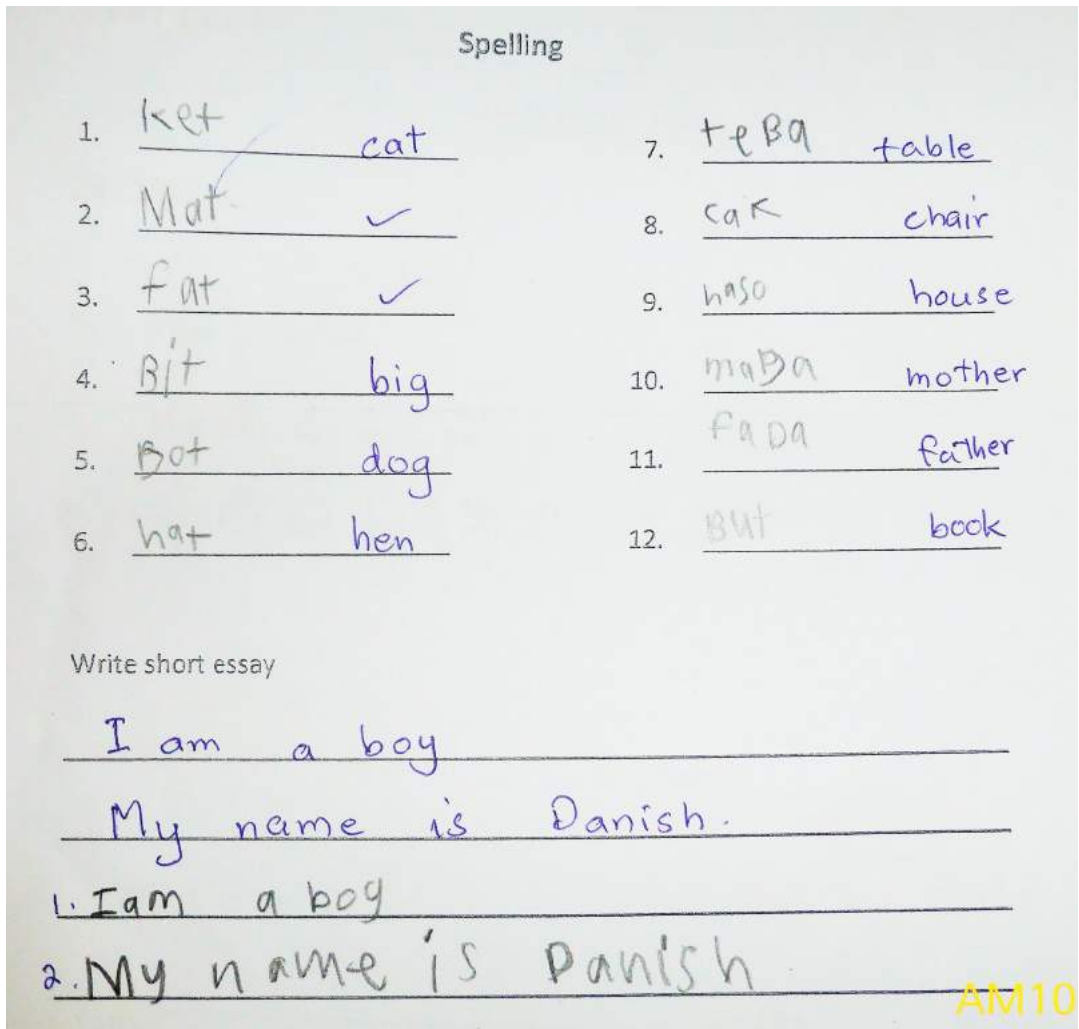 Spelling
1. ket cat
2. Mat ✓
3. fat ✓
4. Bit big
5. Bot dog
6. hat hen
7. teBa table
8. cak chair
9. haso house
10. maBa mother
11. FaDa father
12. But book
Write short essay
I am a boy
My name is Danish.
1. I am a boy
2. My name is Danish
AM10